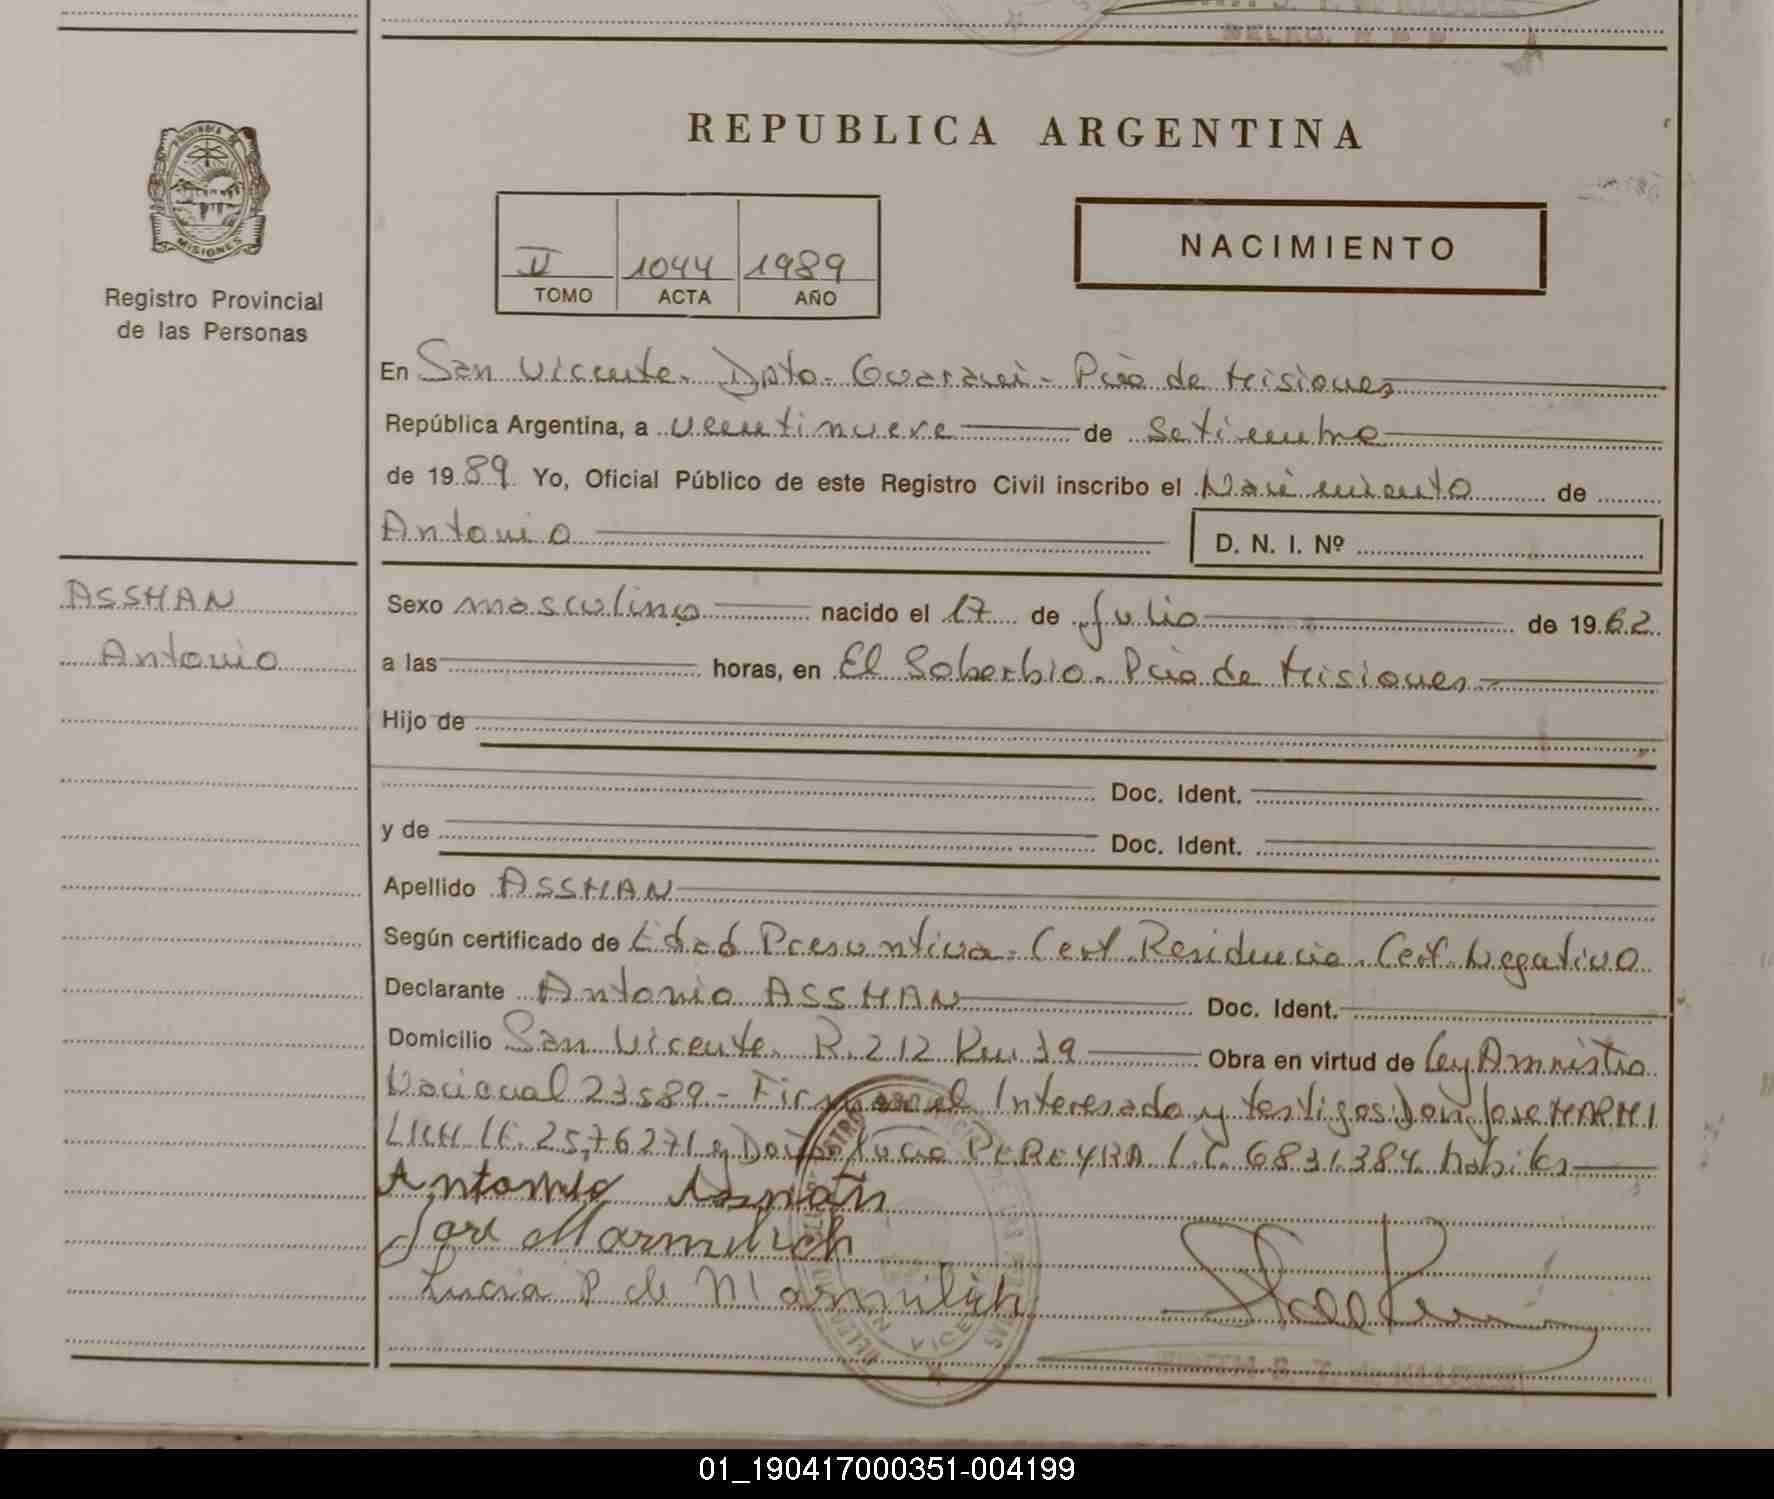 REPUBLICA ARGENTINA
PROVINCIA DE
MISIONES
Registro Provincial
de las Personas
II 1044 1989
TOMO ACTA AÑO
NACIMIENTO
En San Vicente. Dpto. Guaraní - Pcia de Misiones
República Argentina, a veentinueve de Setiembre
de 1989 Yo, Oficial Público de este Registro Civil inscribo el Nacimiento de
Antonio D. N. I. Nº
ASSHAN
Antonio
Sexo masculino nacido el 17 de Julio de 1962
a las horas, en El Soberbio. Pcia de Misiones
Hijo de
Doc. Ident.
y de Doc. Ident.
Apellido ASSHAN
Según certificado de Edad Presuntiva. Cert. Residencia. Cert. Negativo
Declarante Antonio ASSHAN Doc. Ident.
Domicilio San Vicente. R. 212 Km. 19 Obra en virtud de Ley Amnistia
Nacional 23589 - Firman el Interesado y testigos: Don Jose MARMI
LICH L.E. 2576271 y Doña Lucia PEREYRA L.C. 6831384 habiles
Antonio Assnan
Jose Marmilich
Lucia P de Marmilich
01_190417000351-004199